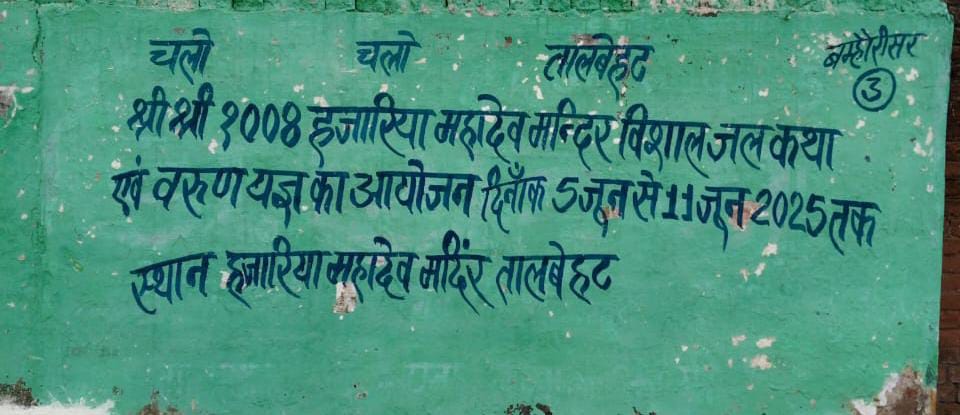 चलो चलो तालबेहट
बम्हौरीसर
3
श्री श्री १००८ हजारिया महादेव मन्दिर विशाल जल कथा
एवं वरुण यज्ञ का आयोजन दिनाँक 5 जून से 11 जून 2025 तक
स्थान हजारिया महादेव मदिंर तालबेहट